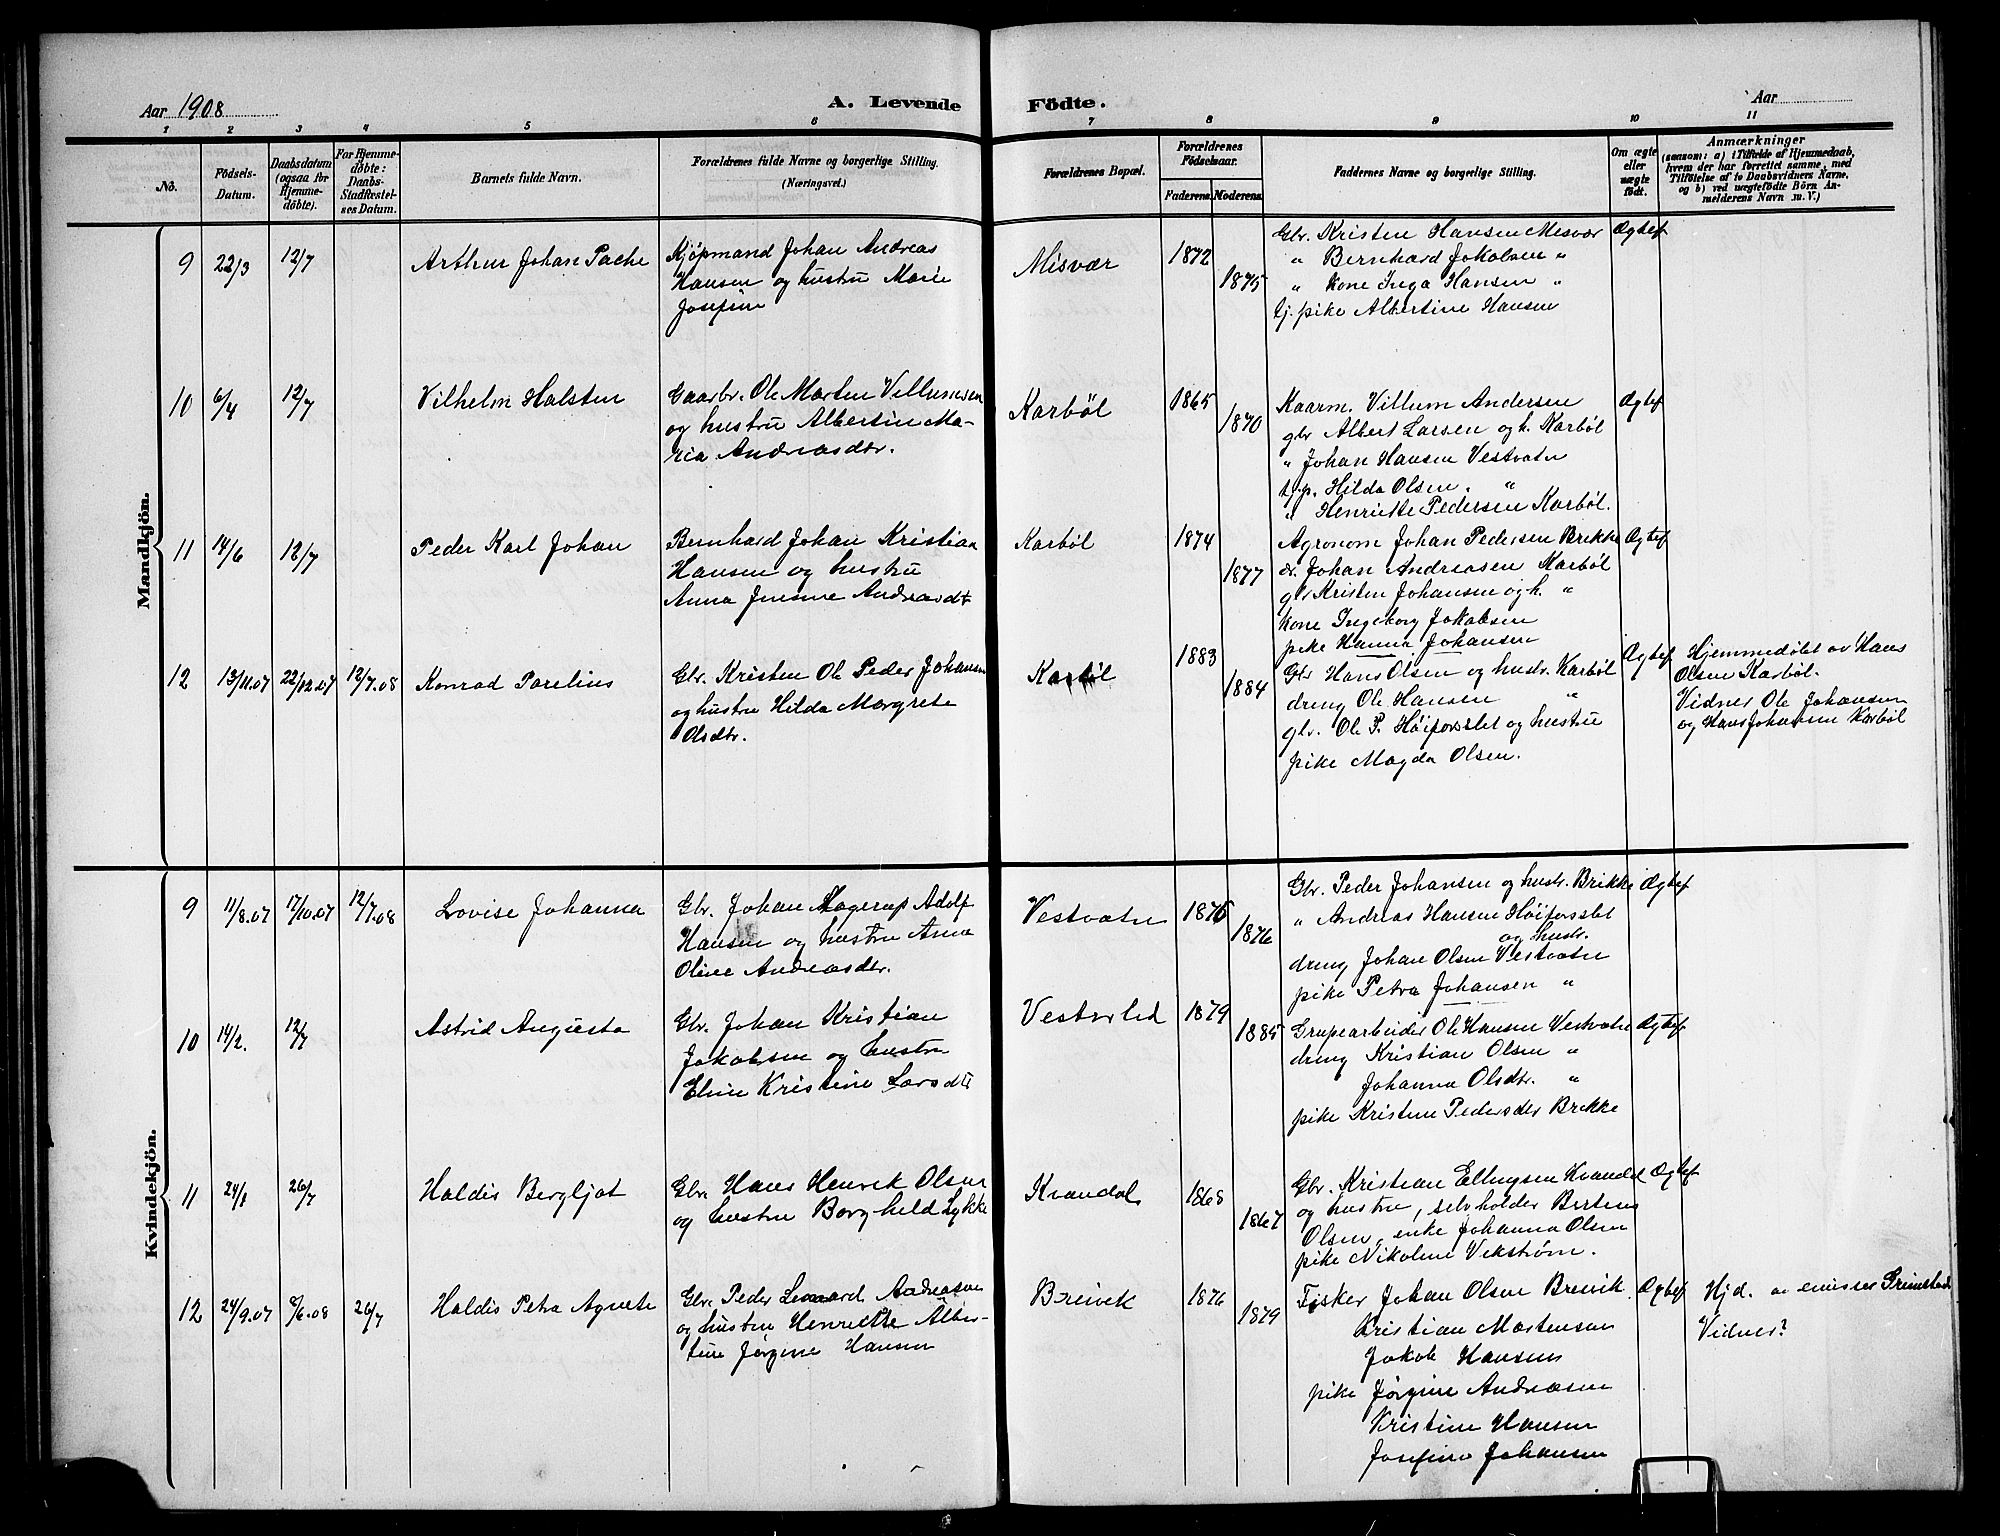 Aar 1908
A. Levende Födte.
Aar
1 2 3 4 5 6 7 8 9 10 11
No. Födsels-Datum. Daabsdatum (ogsaa for Hjemme-döbte). For Hjemme-döbte: Daabs-Stadfæstel-ses Datum. Barnets fulde Navn. Forældrenes fulde Navne og borgerlige Stilling. (Næringsvei.) Forældrenes Bopæl. Forældrenes Födselsaar. Faderens. Moderens. Faddernes Navne og borgerlige Stilling. Om ægte eller uægte födt. Anmærkninger (saasom: a) i Tilfælde af Hjemmedaab, hvem der har forrettet samme, med Tilföielse af to Daabsvidners Navne, og b) ved uægtefödte Börn An-melderens Navn m. V.)
Mandkjön.
9 22/3 12/7 Arthur Johan Pache
Kjöpmand Johan Andreas
Hansen og hustru Marie
Josefine
Misvær 1872 1875
Gbr. Kristen Hansen Misvær
" Bernhard Jakobsen "
" kone Inga Hansen "
tj. pike Albertine Hansen
Ægtef
10 6/4 12/7 Vilhelm Halsten
Gaarbr. Ole Morten Villumsen
og hustru Albertin Ma-
ria Andreasdtr.
Karbøl 1865 1870
Kaarm. Villum Andersen
gbr Albert Larsen og h. Karbøl
" Johan Hansen Vestvatn
tj.p. Hilda Olsen. "
" Henriette Pedersen Karbøl.
Ægtef
11 14/6 12/7 Peder Karl Johan
Bernhard Johan Kristian
Hansen og hustru
Anna Andreasdt
Karbøl 1874 1877
Agronom Johan Pedersen Brikke
Johan Andreasen Karbøl
gbr Kristen Johansen og h. "
kone Ingeborg Jakobsen
pike Hanna Johansen
Ægtef
12 13/11.07 22/12.07 12/7.08 Konrad Parelius
Gbr. Kristen Ole Peder Johansen
og hustru Hilda Margrete
Olsdtr.
Karbøl 1883 1884
Gbr Hans Olsen og hustr. Karbøl
dreng Ole Hansen "
gbr. Ole P. Höiforsslet og hustru
pike Magda Olsen.
Ægtef
Hjemmedøbt av Hans
Olsen Karbøl.
Vidner Ole Johansen
og Hans Johansen Karbøl
Kvindekjön.
9 11/8.07 17/10.07 12/7.08 Lovise Johanna
Gbr. Johan Hagerup Adolf
Hansen og hustru Anna
Oline Andreasdtr.
Vestvatn 1875 1876
Gbr. Peder Johansen og hustr. Brikke
" Andreas Hansen Höiforsslet
og hustr.
dreng Johan Olsen Vestvatn
pike Petra Johansen "
Ægtef
10 14/2. 12/7 Astrid Augusta
Gbr. Johan Kristian
Jakobsen og hustru
Eline Kristine Larsdt
1879 1885
Grupearbeider Ole Hansen Vestvatn
dreng Kristian Olsen "
Johanna Olsdtr. "
pike Kristine Pedersdtr Brekke
Ægtef
11 24/1 26/7 Haldis Bergljot
Gbr Hans Henrik Olsen
og hustru Borghild Lykke
Kvandal 1868 1867
Gbr. Kristian Ellingsen Kvandal
og hustru, selvholder Bertine
Olsen, enke Johanna Olsen
pike Nikoline Vekstrøm.
Ægtef
12 24/9.07 8/6.08 26/7 Haldis Petra Agnete
Gbr Peder Lenard Andreasen
og hustru Henriette Alber-
tine Jørgine Hansen
Breivik 1876 1879
Fisker Johan Olsen Breivik
Kristian Mortensen
Jakob Hansen
pike Jørgine Andreasen
Kristine Hansen
Josefine Johansen
Ægtef
Hjd. av emissær Grimstad
Vidner?